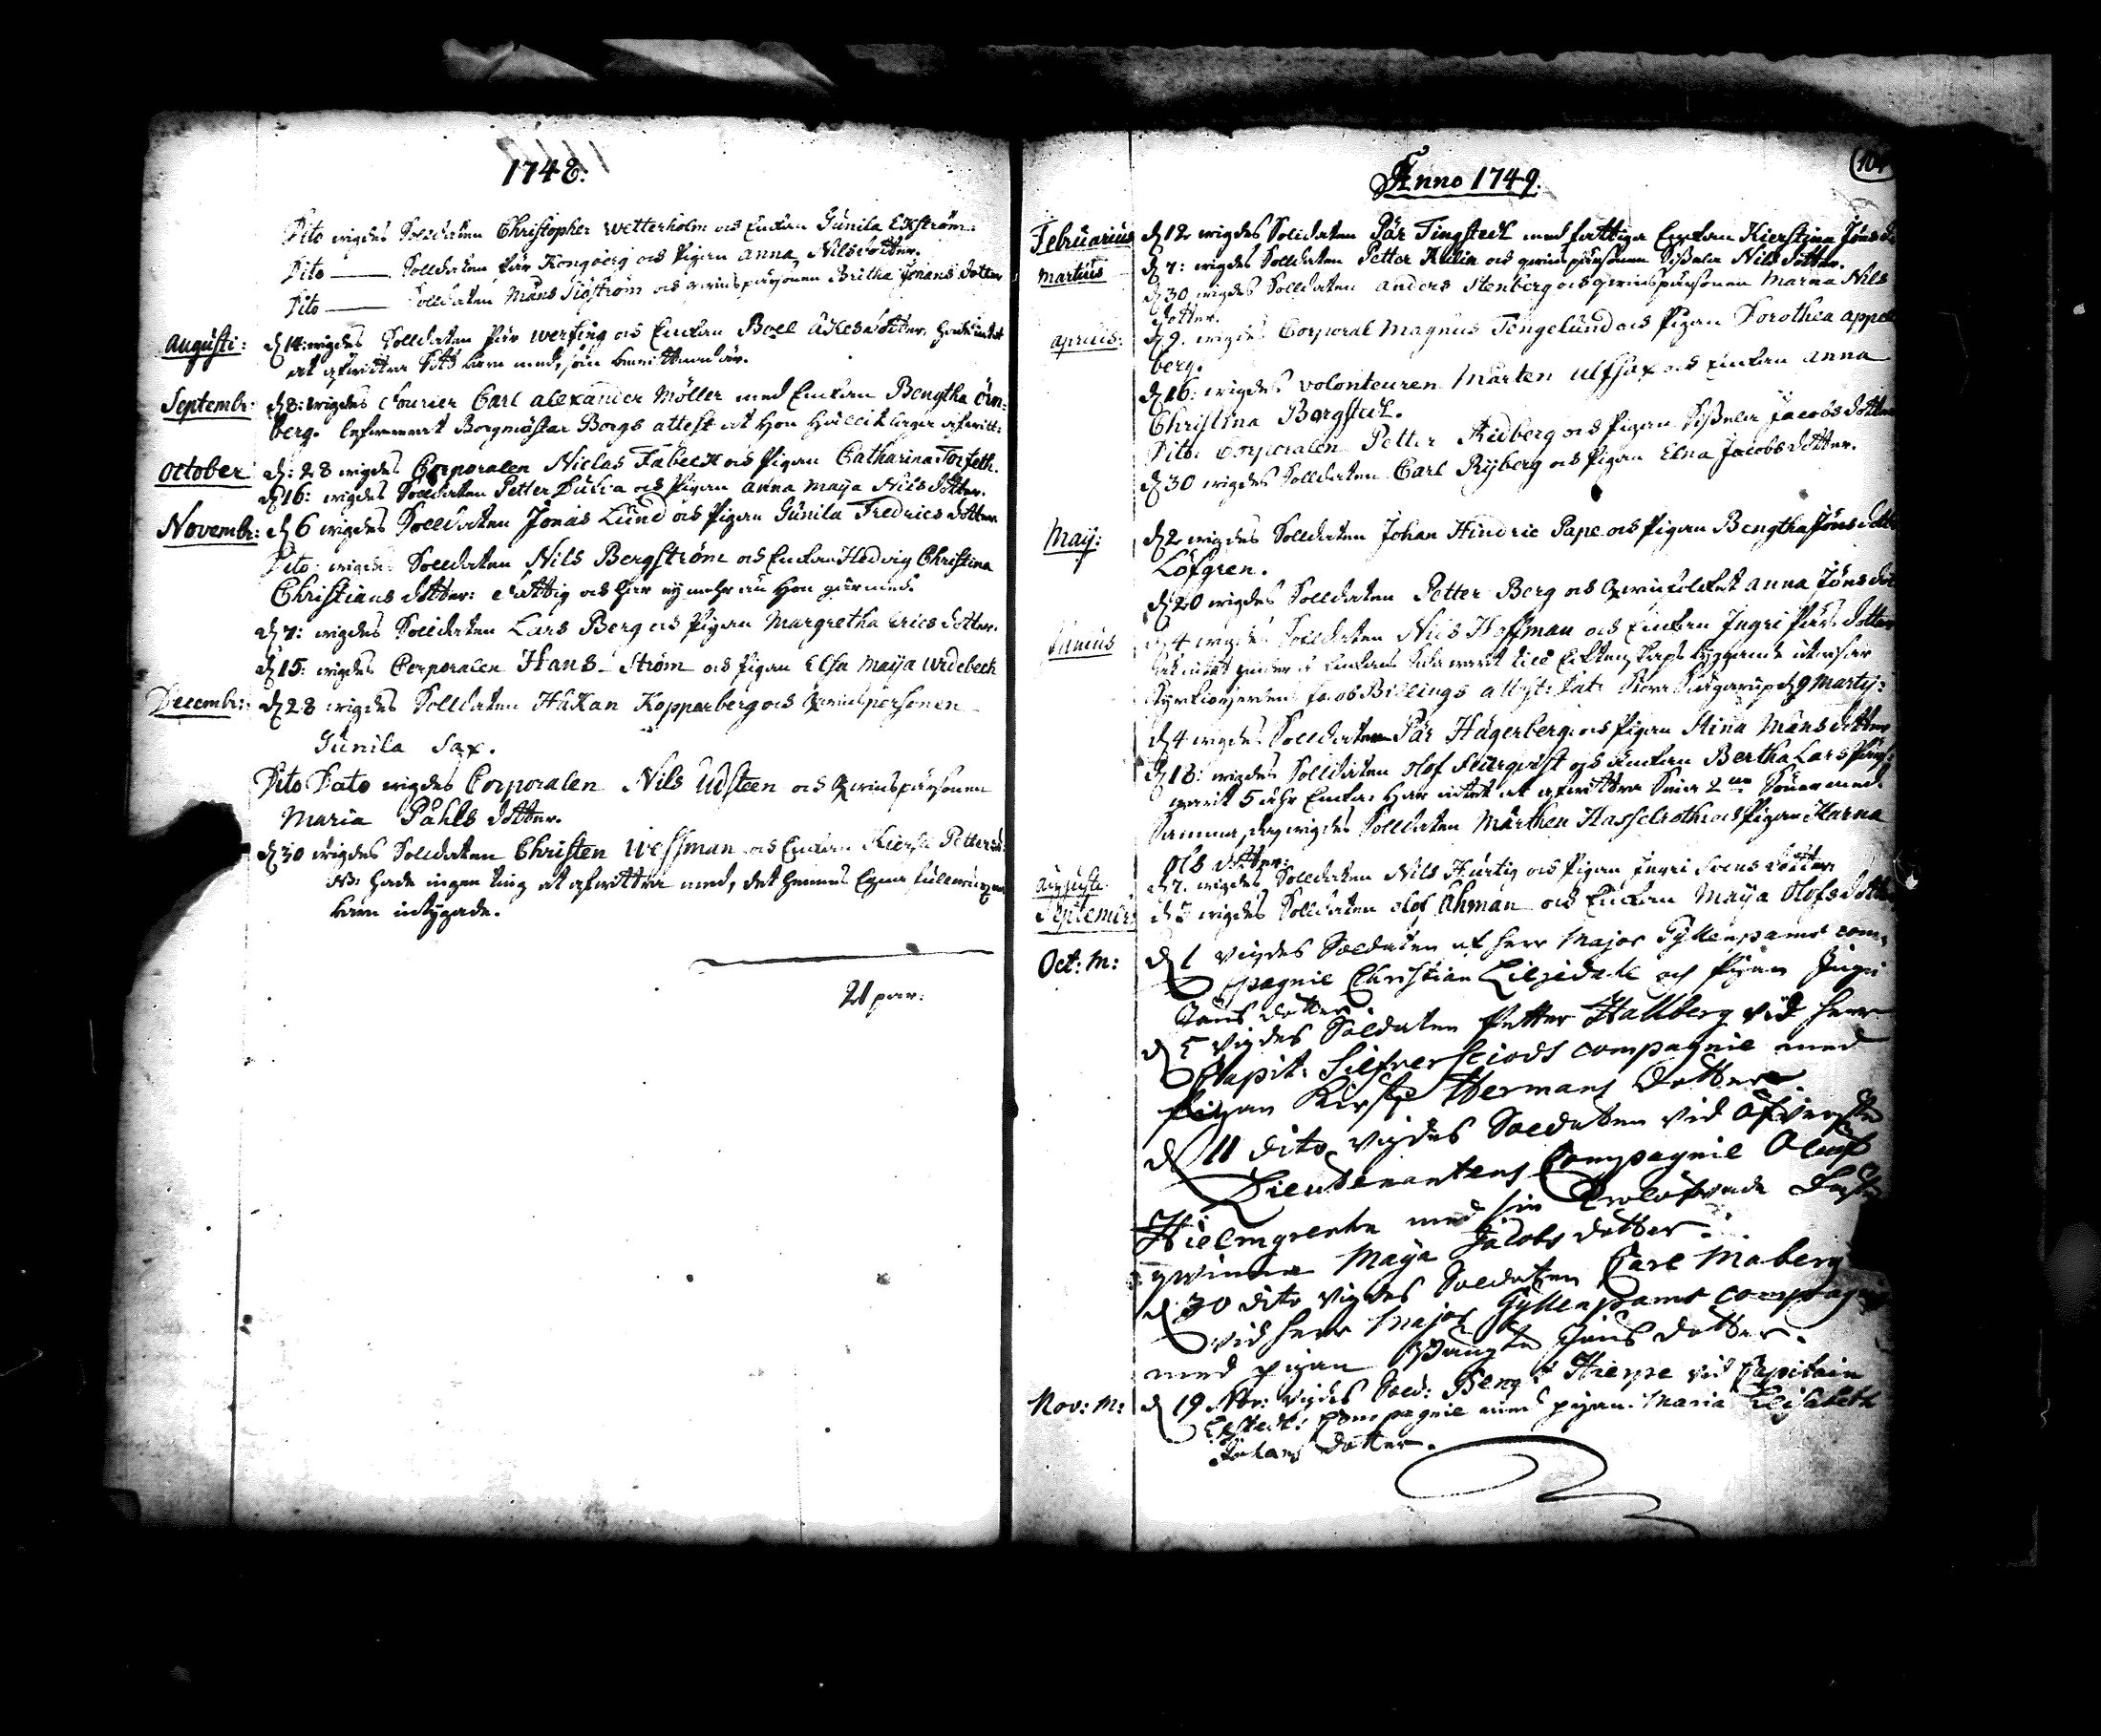 1748.
Dito wigdes Solldaten Christopher Wetterholm och Enckan Gunila Ekström.
Dito —— Solldaten Pär Kongberg och Pigan Anna Nilsdotter.
Dito —— Solldaten Måns Siöström och qwinspärsonen Britha Johans dotter
Augusti: d 14: wigdes Solldaten Pär Werfing och Enckan Boel Åkesdotter, hade intet
at afwittra sitt barn med, som
Septembr: d 8: wigdes Fourier Carl Alexander Möller med Enckan Bengtha Örn-
berg. Borgmästar Borgs attest at hon
October d: 28 wigdes Corporalen Niclas Fabeck och Pigan Catharina
d 16: wigdes Solldaten Petter och Pigan Anna Maija Nilsdotter.
Novembr: d 6 wigdes Solldaten Jonas Lund och Pigan Gunila Fredrics dotter
Dito: wigdes Solldaten Nils Bergström och Enckan Hedvig Christina
Christians dotter: fattig och har ej mehr än hon går med.
d 7: wigdes Solldaten Lars Berg och Pigan Margretha Erics dotter.
d 15: wigdes Corporalen Hans Ström och Pigan Elsa Maija Widebeck
Decembr: d 28 wigdes Solldaten Håkan Kopparberg och Qwinspersonen
Gunila Sax.
Dito Dato wigdes Corporalen Nils Udsteen och Qwinspärsonen
Maria Påhls dotter.
d 30 wigdes Soldaten Christen Wessman och Enckan Kiersti Petters
NB: hade ingen ting at afwittra med, det hennes Egna
barn intygade.
21 par:
Anno 1749.
Februarius d 12 wigdes Solldaten Pär Tingstedt med fattiga Enckan Kierstina Jöns
Martius d 7: wigdes Solldaten Petter och qwinspärsonen Sissela Nils dotter.
d 30 wigdes Solldaten Anders Stenberg och qwinspärsonen Marna Nils
dotter.
Aprilis: d 9. wigdes Corporal Magnus Tengelund och Pigan Dorothea Appel
berg.
d 16: wigdes Volonteuren Mårten Ulfsax och Enckan Anna
Christina Borgstedt.
Dito: Corporalen Petter Ridberg och Pigan Sissela Jacobs dotter
d 30 wigdes Solldaten Carl Ryberg och Pigan Elna Jacobs dotter.
May: d 2 wigdes Solldaten Johan Hindric Pape och Pigan Bengtha Jöns dott
Löfgren.
d 20 wigdes Solldaten Petter Berg och Qwinfolcket Anna Jöns dot
Junius d 4 wigdes Solldaten Nils Hoffman och Enckan Ingri Pärs dotter
Jacob Billings attest: dat: Stora d 9 Martij:
d 4 wigdes Solldaten Pär Hägerberg och Pigan Stina Måns dotter
d 18: wigdes Solldaten Olof och Enckan Bertha Lars
warit 5 åhr Encka: Har intet at afwittra Sina 2ne Söner med.
Samma dag wigdes Solldaten Mårthen Hasselroth och Pigan Karna
Ols dotter:
Augusti d 7. wigdes Solldaten Nils Hurtig och Pigan Ingri Svens dotter
Septembr d 3 wigdes Solldaten Olof Åhman och Enckan Maija Olofs dotter
Oct: M: d 1 vigdes Soldaten af herr Major Gyllenpams com-
pagnie Christian Liljedahl och Pigan Ingri
Jöns dotter
d 5 vigdes Soldaten Petter Hallberg vid herr
Capit: Silfverskiöds compagnie med
Pigan Kirsti Hermans dotter
d 11 dito vigdes Soldaten vid Öfverste
Lieutenantens Compagnie Oluf
Hielmgrehn med sin Trolofvade
qwinna Maija Jacobs dotter:
d 30 dito vigdes Soldaten Carl Moberg
vid herr Major Gyllenpams compagnie
med pigan Bängta Jöns dotter.
Nov: M: d 19 Nov: vigdes Sold: Bengt Hierpe vid Capitain
compagnie med pigan Maria Elisabeth
Johans dotter.